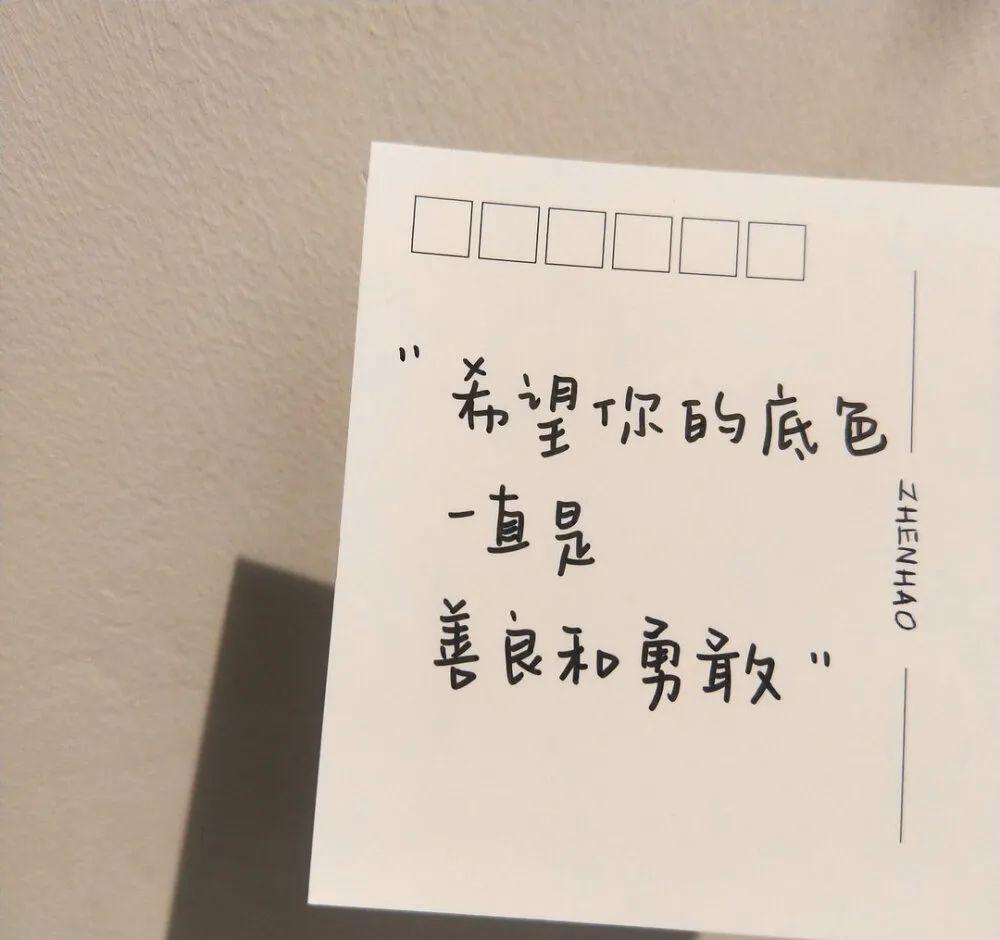 "希望你的底色
一直是
善良和勇敢"
ZHENHAO